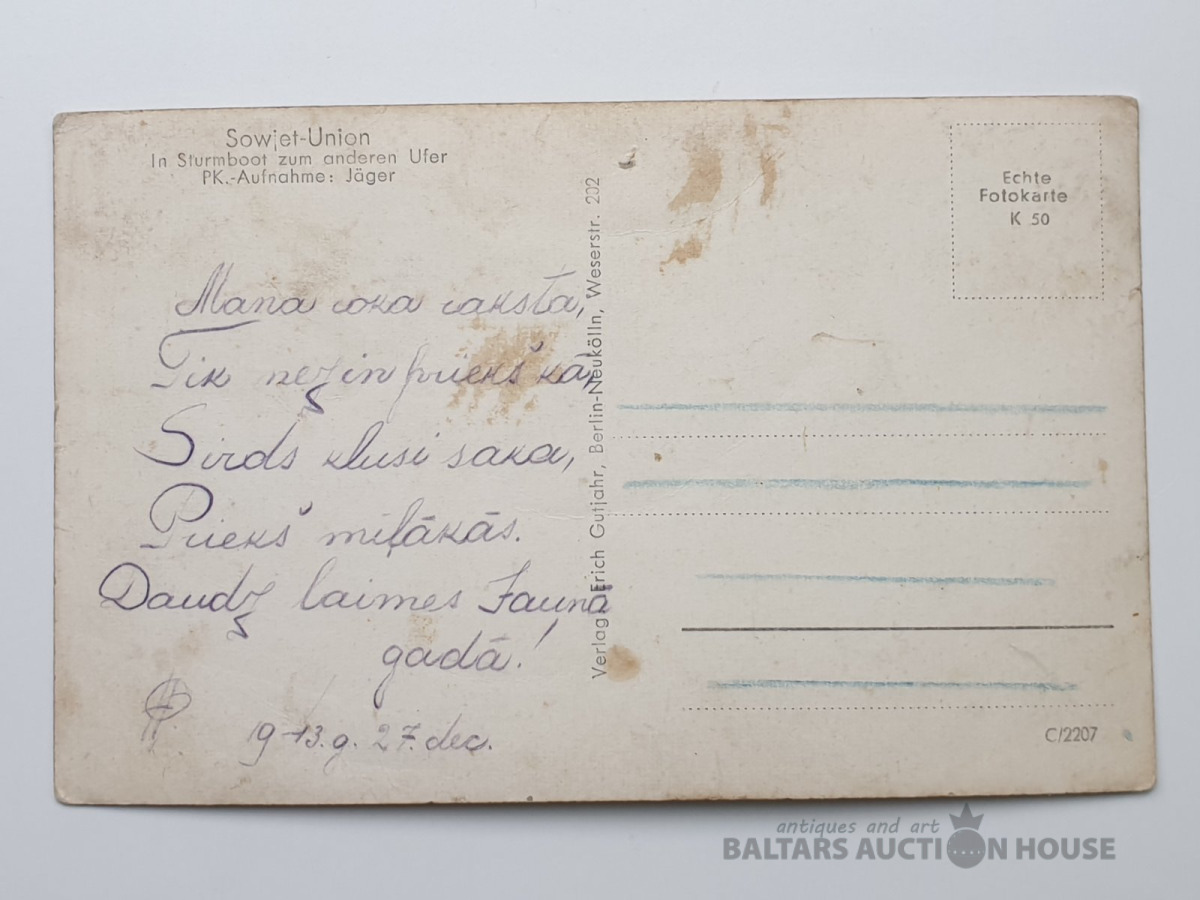 Sowjet-Union
In Sturmboot zum anderen Ufer
PK.-Aufnahme: Jäger
Echte
Fotokarte
K 50
Mana roka raksta,
Tik nezin priekš kā,
Sirds klusi saka,
Priekš miļākās.
Daudz laimes Jauņā
gadā!
1943.g. 27. dec.
Verlag Erich Gutjahr, Berlin-Neukölln, Weserstr. 202
C/2207
antiques and art
BALTARS AUCTION HOUSE